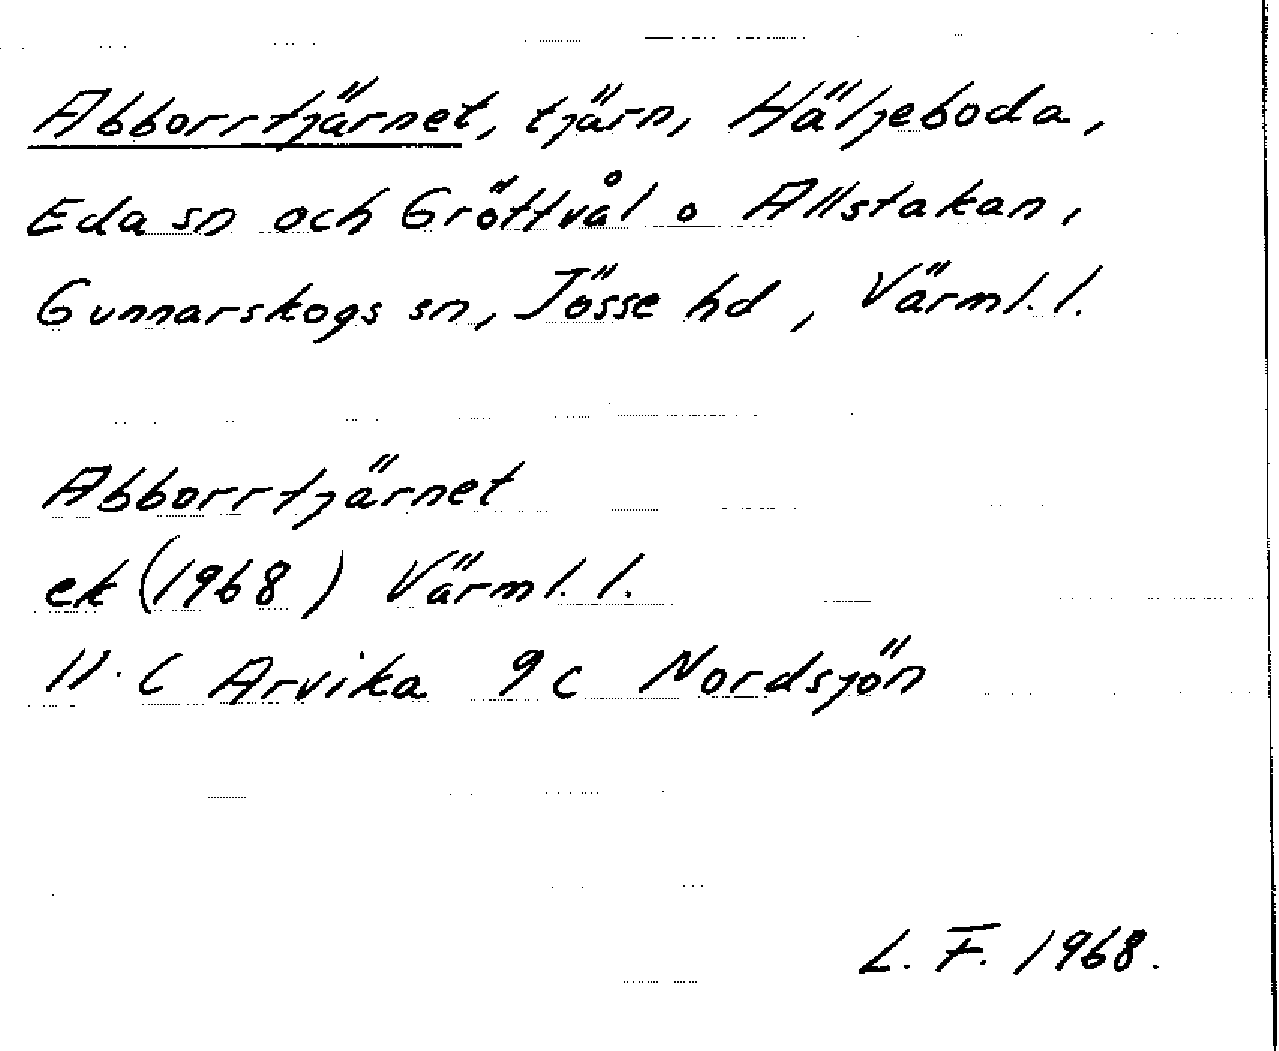 Abborrtjärnet, tjärn, Häljeboda,
Eda sn och Gröttvål o Allstakan,
Gunnarskogs sn, Jösse hd, Värml. l.
Abborrtjärnet
ek (1968) Värml. l.
11.C Arvika 9c Nordsjön
L. F. 1968.